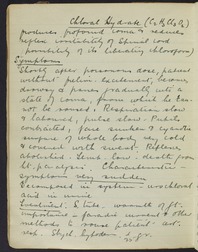 Chloral Hydrate (C₂ H₃ Cl₃ O₂)
produces profound coma & reduces
reflex irritability of Spinal cord
possibility of its liberating chloroform)
Symptoms
Shortly after poisonous dose, patient
without pulse. becomes
drowsy & passes gradually into a
state of coma, from which he can
not be roused. Respiration slow
& laboured, pulse slow. Pupils
contracted, face sunken & cyanotic
surface of whole body very cold
& covered with sweat. Reflexes
abolished. Temp. low. death from
paralysis.
symptoms very sudden.
Decomposed in system - urochloral
acid in urine
Treatment. S. tube. warmth of ft.
importance - faradic current & other
methods to rouse patient. art.
resp. Strych hypoderm. / gr.